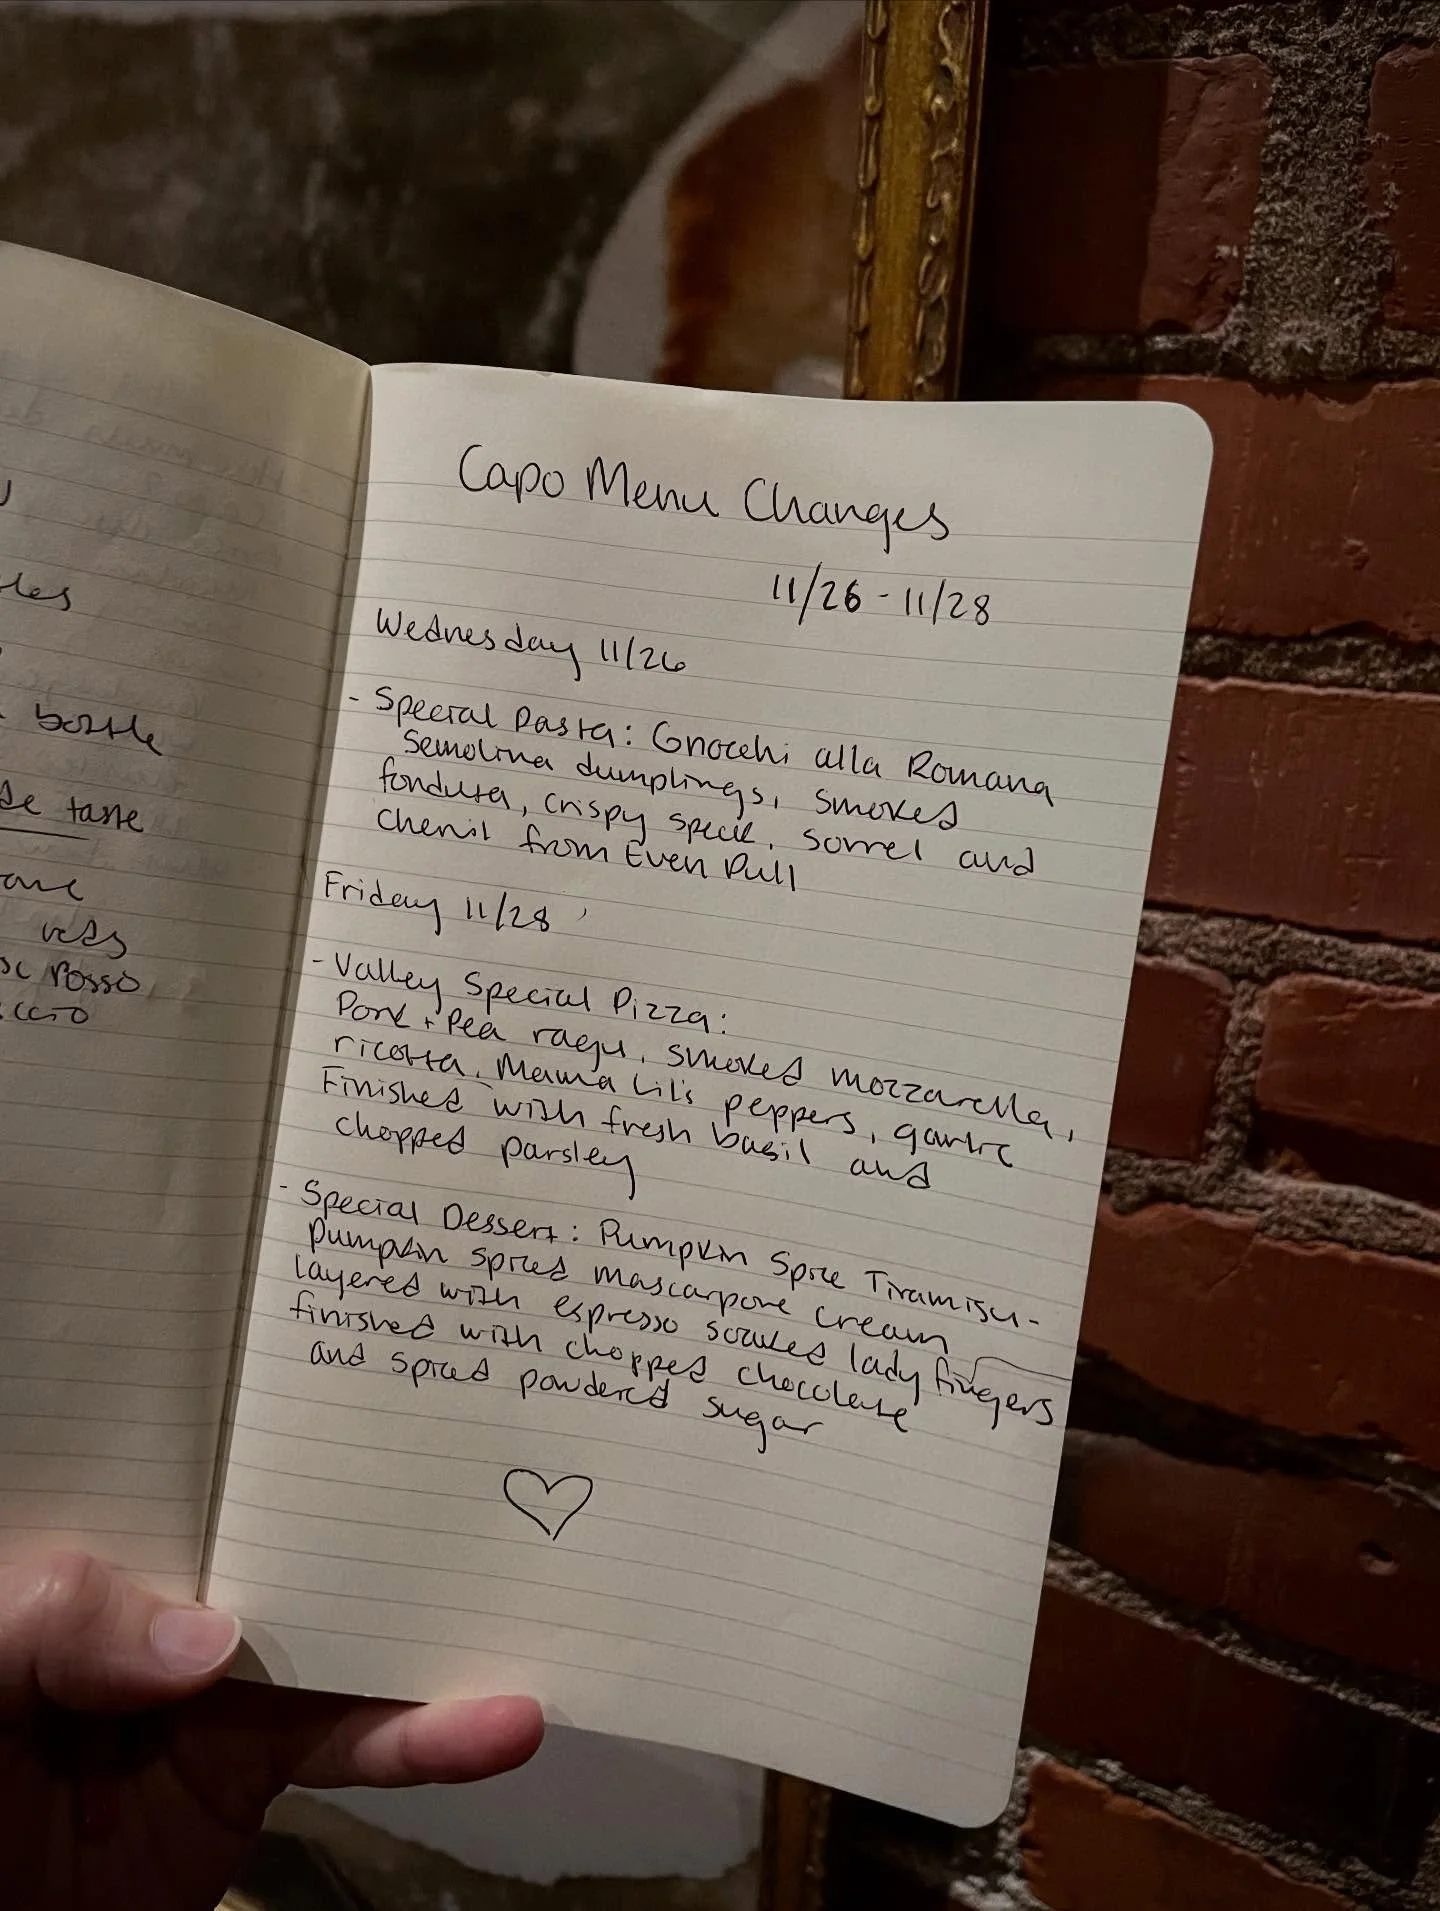 les
bottle
de taste
vets
rosso
ccio
Capo Menu Changes
11/26 - 11/28
Wednesday 11/26
- Special Pasta: Gnocchi alla Romana
Semolina dumplings, smoked
fonduta, crispy speck, sorrel and
chervil from Even Pull
Friday 11/28
- Valley Special Pizza:
Pork + Pea ragu, smoked mozzarella,
ricotta, Mama Lil's peppers, garlic
Finished with fresh basil and
chopped parsley
- Special Dessert: Pumpkin Spice Tiramisu -
pumpkin spiced mascarpone cream
layered with espresso soaked lady fingers
finished with chopped chocolate
and spiced powdered sugar